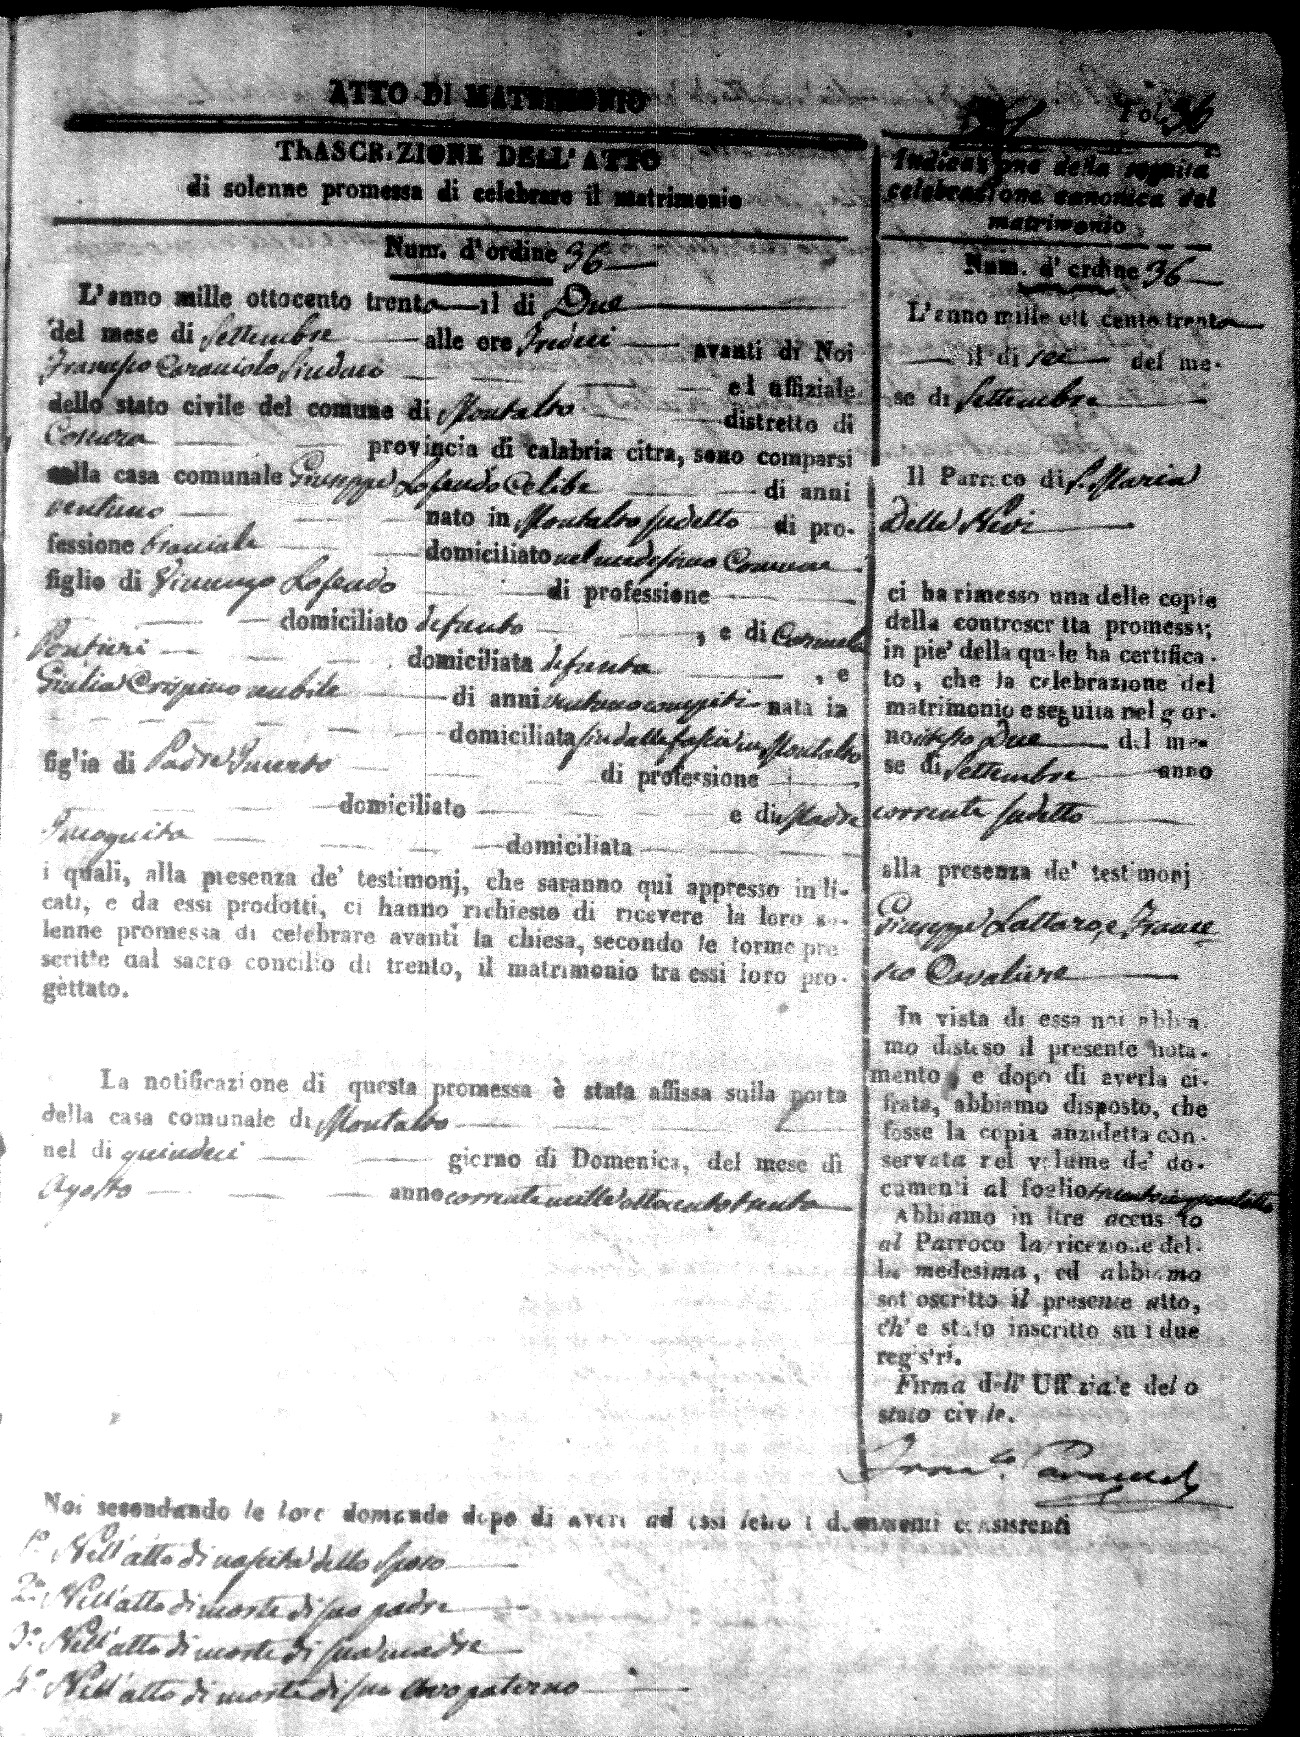 ATTO DI MATRIMONIO
Fol. 36
TRASCRIZIONE DELL' ATTO
di solenne promessa di celebrare il matrimonio
Num. d'ordine 36
L'anno mille ottocento trenta il di Due
del mese di Settembre alle ore Tredici avanti di Noi
Francesco Caraciolo Sindaco ed uffiziale
dello stato civile del comune di Montalto distretto di
Cosenza provincia di calabria citra, sono comparsi
nella casa comunale Giuseppe Lofeudo Celibe di anni
ventuno nato in Montalto sudetto di pro-
fessione bracciale domiciliato nel medesimo Comune
figlio di Vincenzo Lofeudo di professione
domiciliato defunto , e di Carmela
Pontieri domiciliata defunta , e
Giulia Crispino nubile di anni ventuno compiti nata in
domiciliata sin dalle fascie in Montalto
figlia di Padre Incerto di professione
domiciliato e di Madre
Incognita domiciliata
i quali, alla presenza de' testimonj, che saranno qui appresso indi-
cati, e da essi prodotti, ci hanno richiesto di ricevere la loro so-
lenne promessa di celebrare avanti la chiesa, secondo le forme pre
scritte dal sacro concilio di trento, il matrimonio tra essi loro pro-
gèttato.
La notificazione di questa promessa è stata affissa sulla porta
della casa comunale di Montalto
nel di quindeci giorno di Domenica, del mese di
Agosto anno corrente mille ottocento trenta
Noi secondando le loro domande dopo di avere ad essi letto i documenti consistenti
1º Nell'atto di nascita dello Sposo
2º Nell'atto di morte di suo padre
3º Nell'atto di morte di sua madre
4º Nell'atto di morte di suo Avo paterno
Indicazione della seguita
celebrazione canonica del
matrimonio
Num. d' ordine 36
L'anno mille ott cento trenta
il di sei del me-
se di Settembre
Il Parroco di S. Maria
Delle Nevi
ci ha rimesso una delle copie
della controscritta promessa;
in pie' della quale ha certifica-
to, che la celebrazione del
matrimonio e seguita nel gior-
no istesso Due del me-
se di Settembre anno
corrente sudetto
alla presenza de' testimonj
Giuseppe Lattaro, e France
sco Cavaliere
In vista di essa noi abbia-
mo disteso il presente nota-
mento, e dopo di averla ci-
frata, abbiamo disposto, che
fosse la copia anzidetta con-
servata nel volume de' do-
camenti al foglio
Abbiamo in ltre accus to
al Parroco la ricezione del-
la medesima, ed abbiamo
sot oscritto il presente atto,
ch' e stato inscritto su i due
registri.
Firma dell' Uffiziale dello
stato civile.